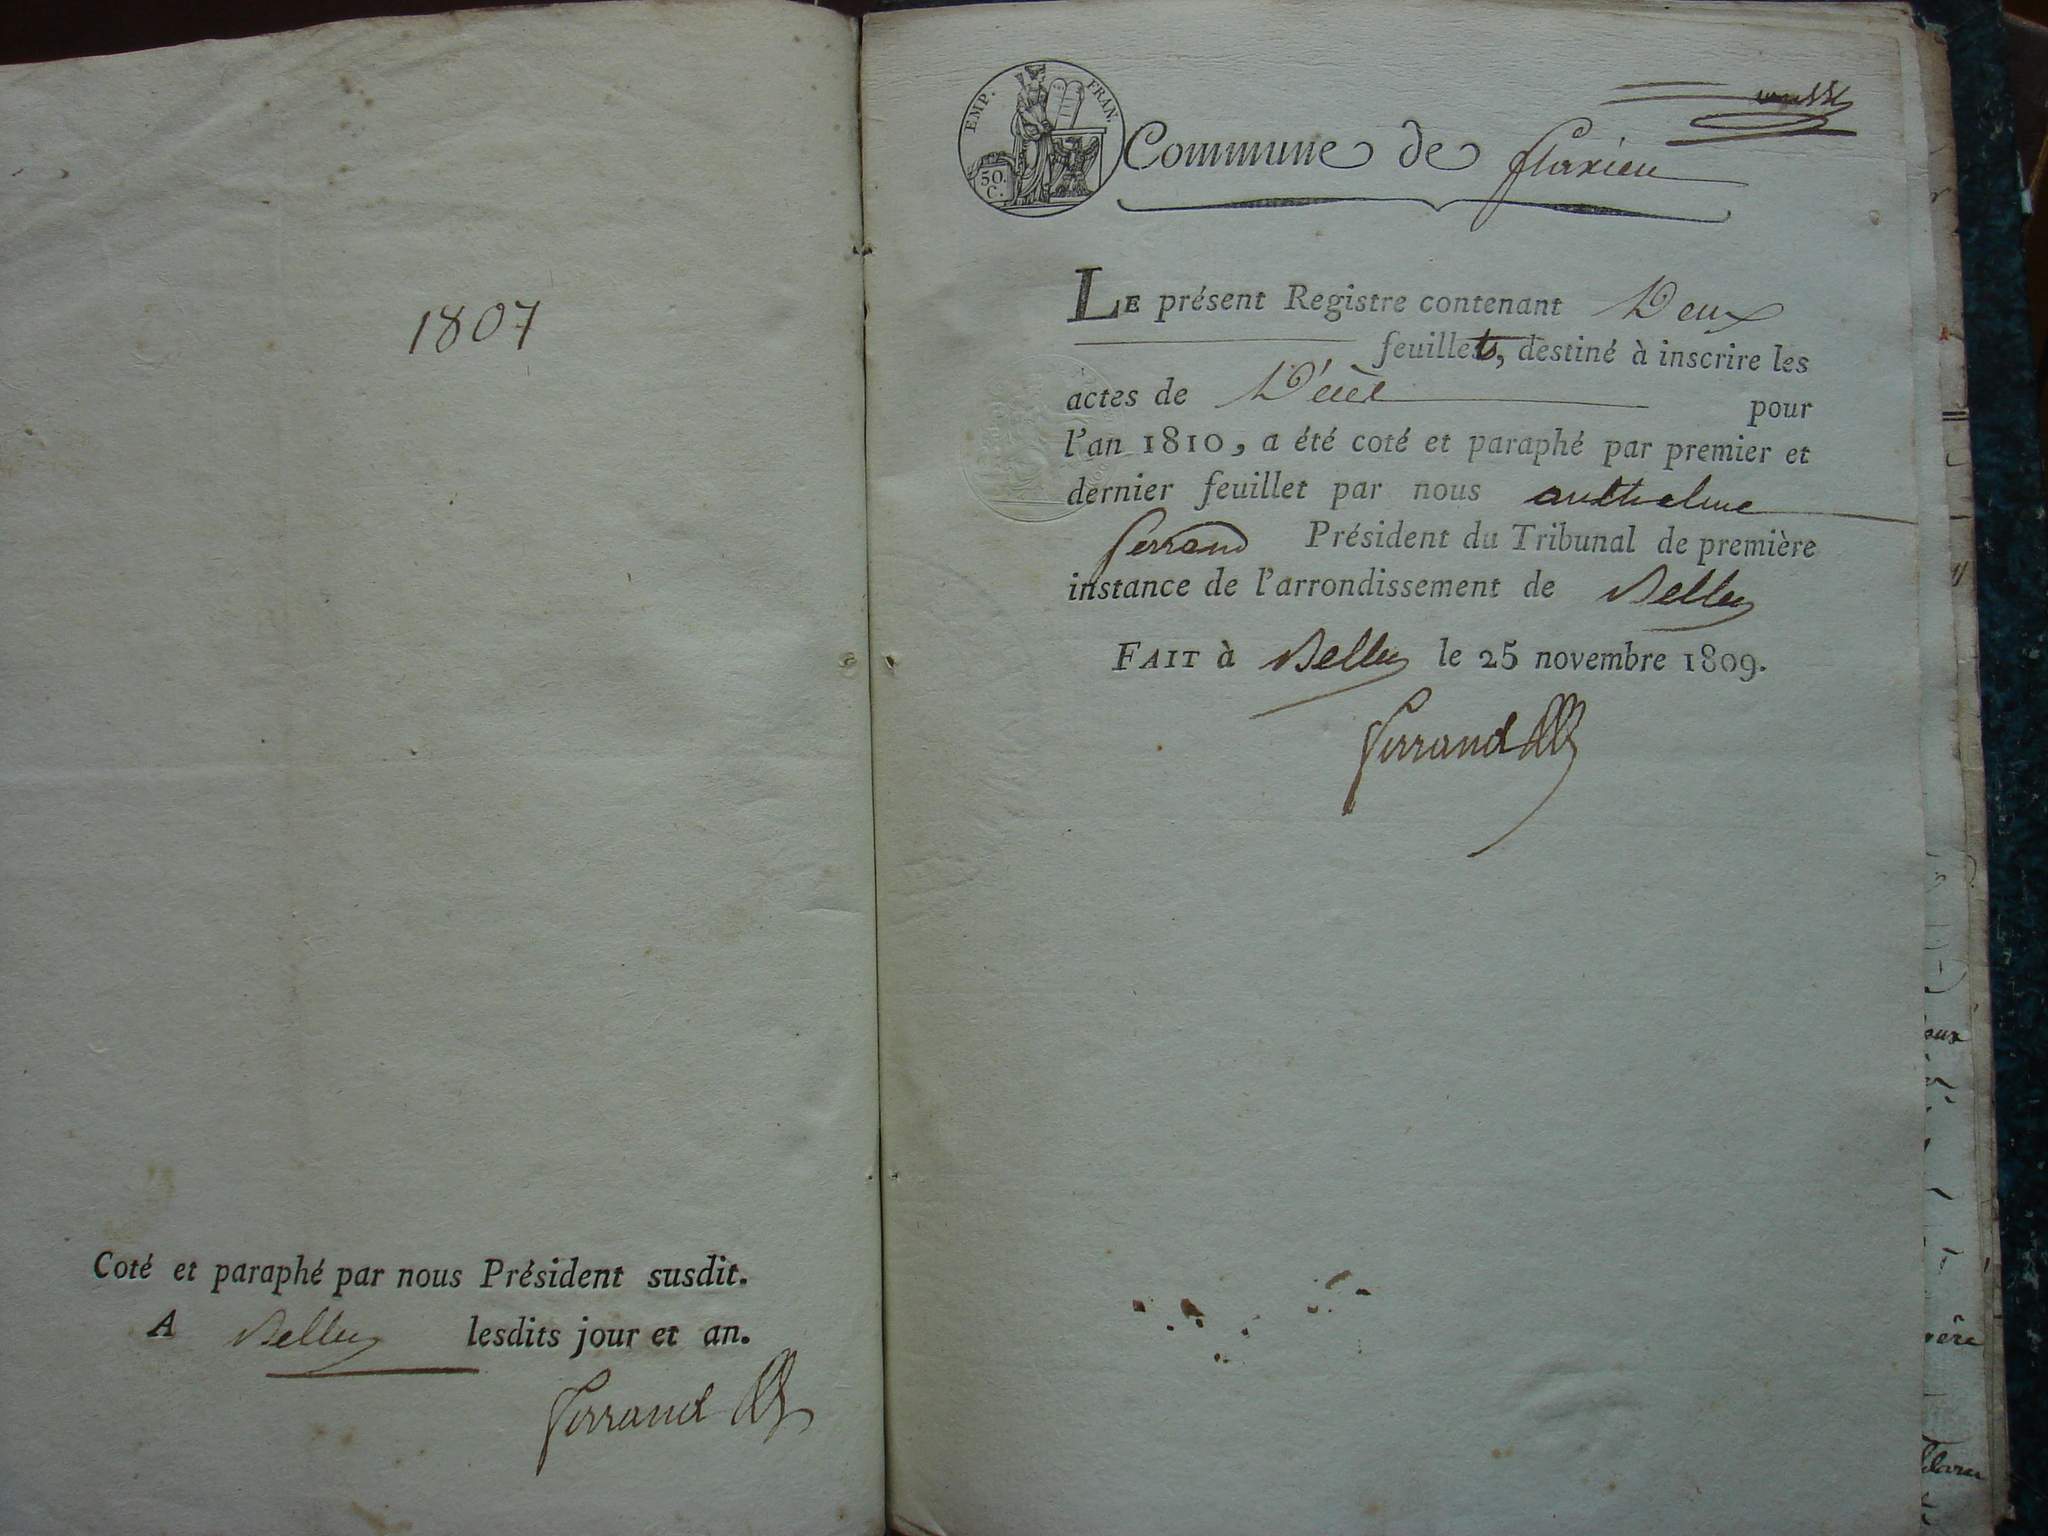 1807
Coté et paraphé par nous Président susdit.
A Belley lesdits jour et an.
Ferrand
EMP. FRAN.
50.
C.
Commune de flaxieu
LE présent Registre contenant Deux
feuillets, destiné à inscrire les
actes de Décès pour
l'an 1810, a été coté et paraphé par premier et
dernier feuillet par nous anthelme
ferrand Président du Tribunal de première
instance de l'arrondissement de Belley
FAIT à Belley le 25 novembre 1809.
Ferrand